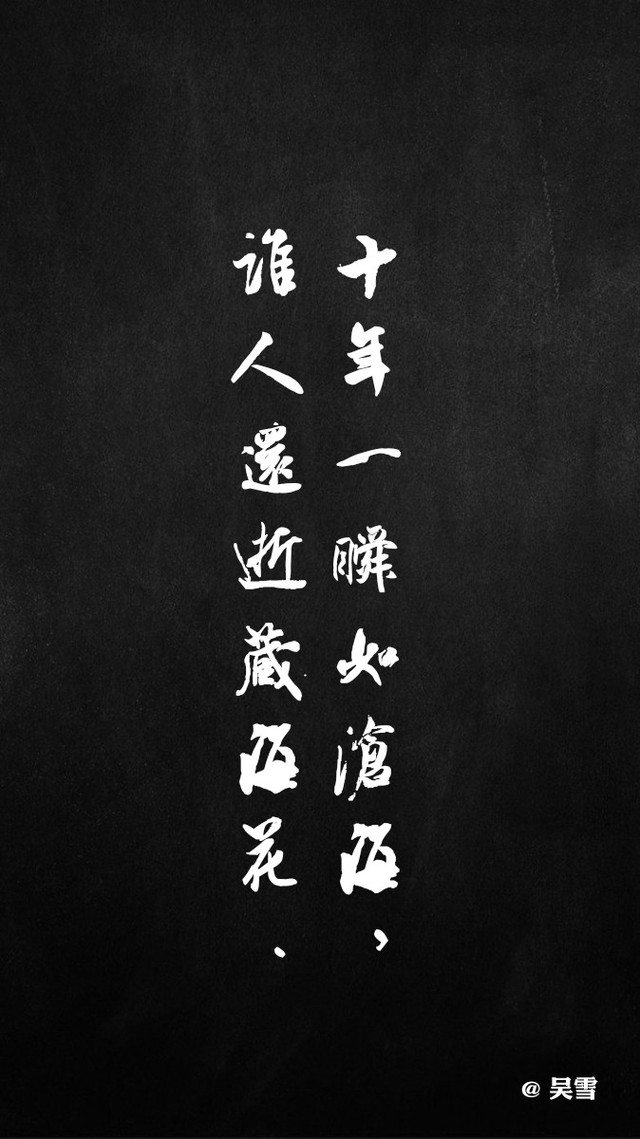 十年一瞬如滄海，
誰人還逝藏海花.
@ 吴雪